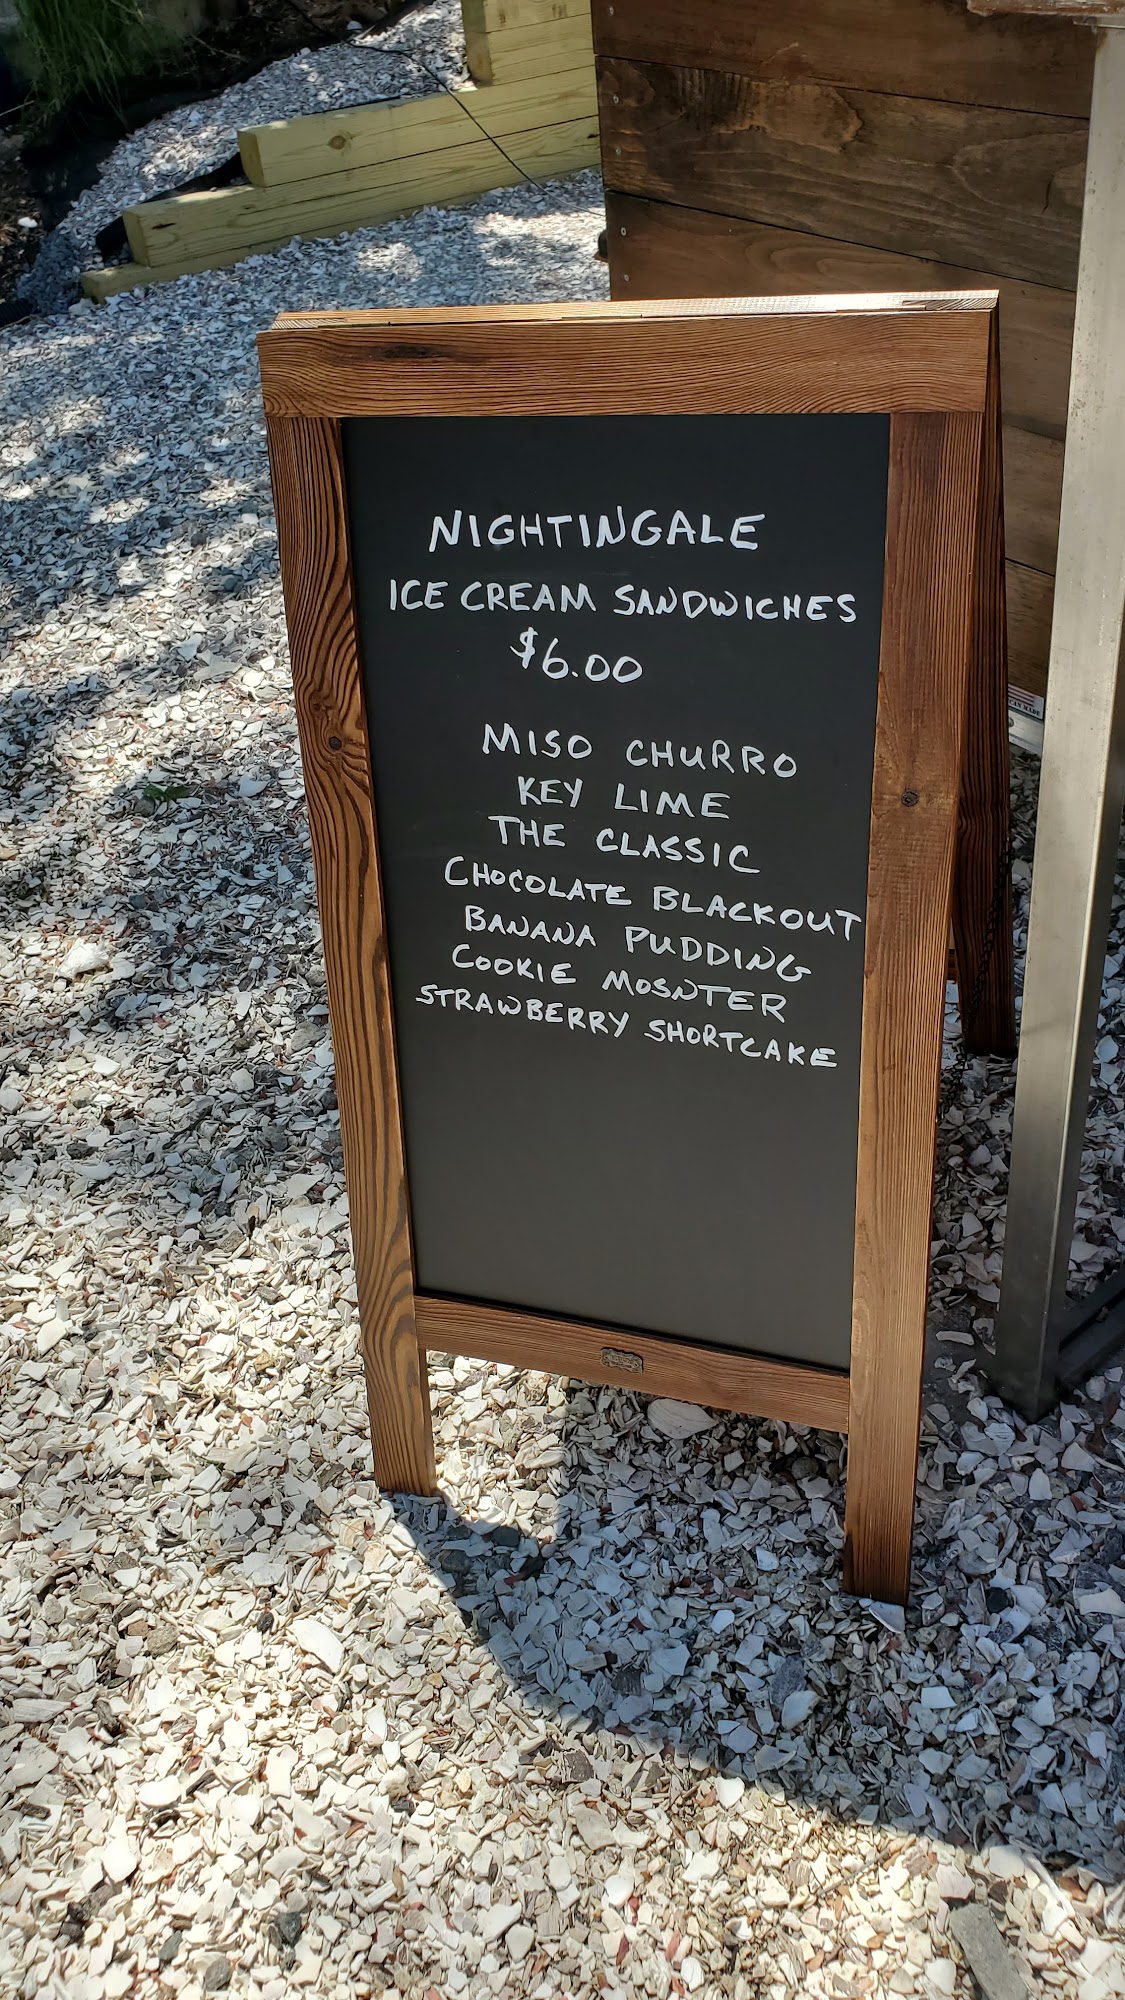 NIGHTINGALE
ICE CREAM SANDWICHES
$6.00
MISO CHURRO
KEY LIME
THE CLASSIC
CHOCOLATE BLACKOUT
BANANA PUDDING
COOKIE MOSNTER
STRAWBERRY SHORTCAKE